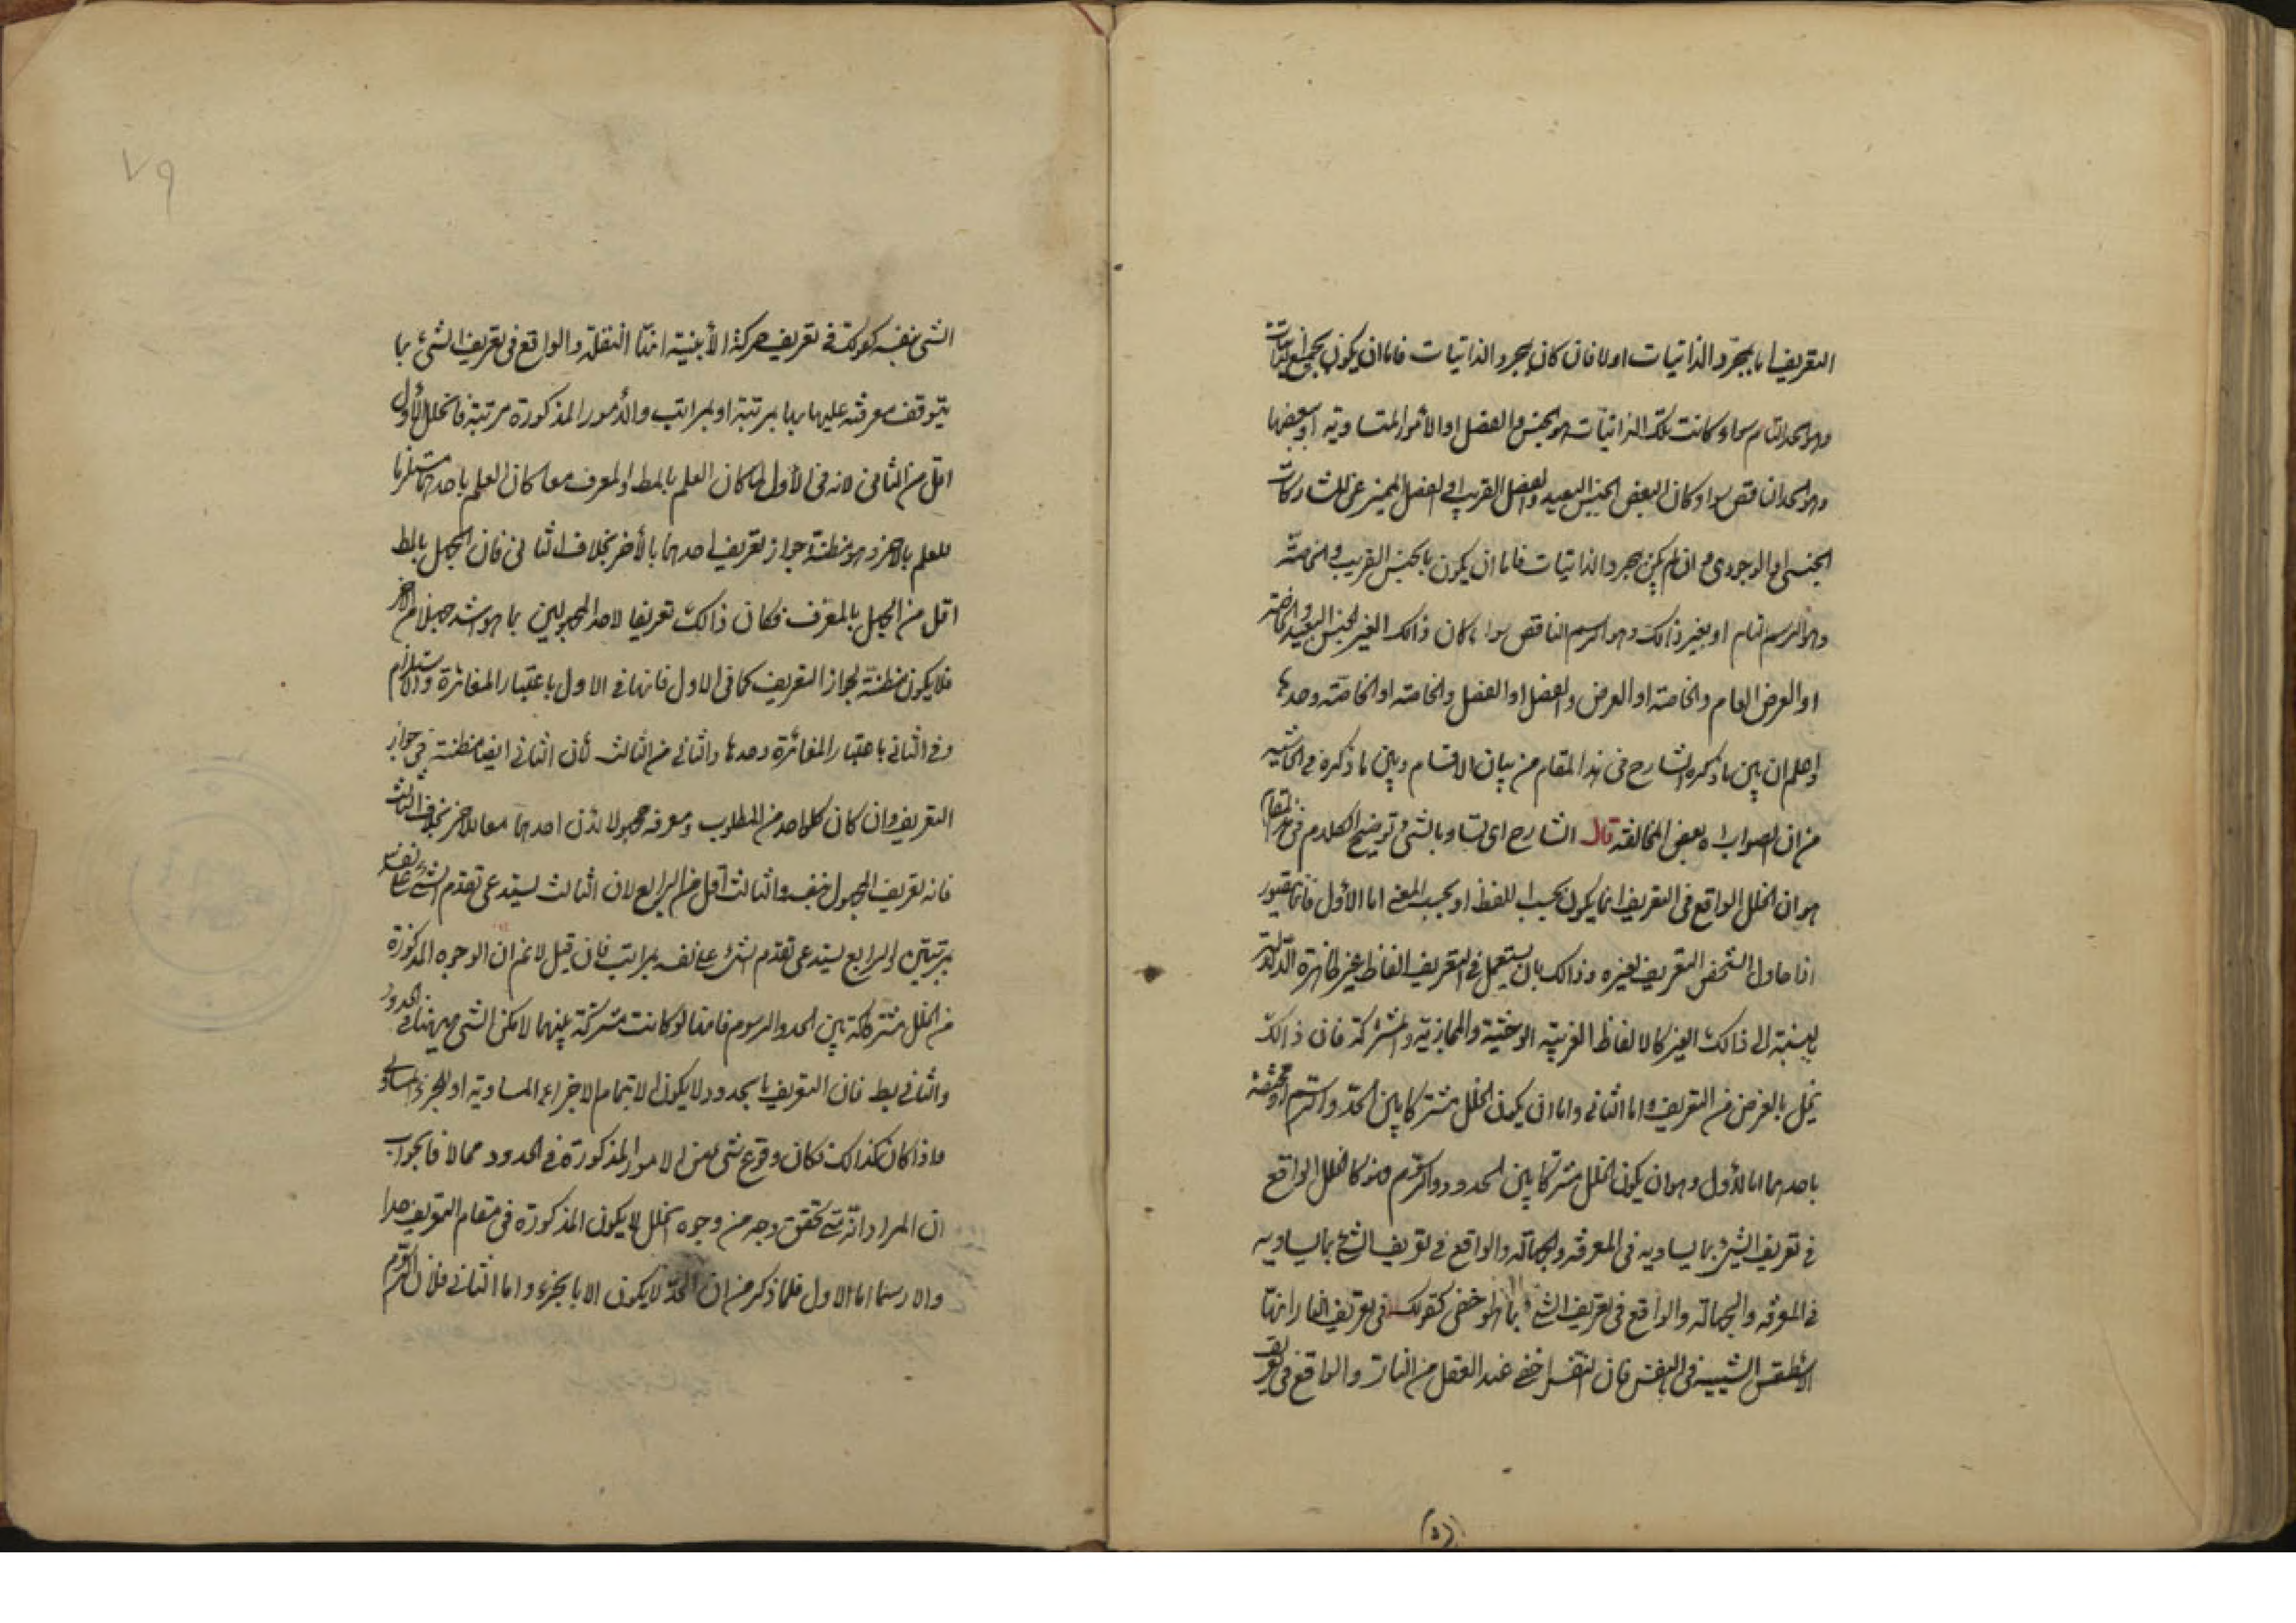 التعريف اما بمجرد الذاتيات اولا فان كان بمجرد الذاتيات فاما ان يكون بجميع الذاتيات
وهو الحد التام سواء كانت تلك الذاتيات هو الجنس والفصل او الأمور المتساوية او ببعضها
وهو الحد الناقص سواء كان البعض الجنس البعيد والفصل القريب او الفصل المميز عن المشاركات
الجنسى او الوجودى وان لم يكن بمجرد الذاتيات فاما ان يكون بالجنس القريب والخاصة
وهو الرسم التام او بغير ذالك وهو الرسم الناقص سواء كان ذالك الغير الجنس البعيد والخاصة
او العرض العام والخاصة او العرض والفصل او الفصل والخاصة او الخاصة وحدها
واعلم ان بين ما ذكره الشارح فى هذا المقام من بيان الاقسام وبين ما ذكره فى الحاشية
من ان الصواب اه بعض المخالفة قال الشارح اى تساو بالشئ توضيح الكلام فى هذا المقام
هو ان الخلل الواقع فى التعريف انما يكون بحسب اللفظ او بحسب المعنى اما الأول فانما يتصور
اذا حاول الشخص التعريف لغيره وذالك بان يستعمل فى التعريف الفاظ غير ظاهرة الدلالة
بالنسبة الى ذالك الغير كالالفاظ الغريبة الوحشية والمجازية والمشتركة فان ذالك
يخل بالغرض من التعريف واما الثانى واما ان يكون الخلل مشتركا بين الحد والرسم او مختصة
باحدهما اما الأول وهو ان يكون الخلل مشتركا بين الحدود والرسم فهو كالخلل الواقع
فى تعريف الشئ بما يساويه فى المعرفة والجهالة والواقع فى تعريف الشئ بما يساويه
فى المعرفة والجهالة والواقع فى تعريف الشئ بما هو اخفى كقولك فى تعريف النار انها
الاسطقس الشبيه فى النفس فان النفس اخفى عند العقل من النار والواقع فى تعريف
٧٩
الشئ بنفسه كقولك فى تعريف حركة الأينية انها النقلة والواقع فى تعريف الشئ بما
يتوقف معرفته عليها بمرتبة او بمراتب والأمور المذكورة مرتبة فالخلل الأول
اقل من الثانى لانه فى الأول لما كان العلم بالمط والمعرف معا كان العلم باحدهما مستلزما
للعلم بالاخر وهو مظنة جواز تعريف احدهما بالأخر بخلاف الثانى فان الجهل بالمط
اقل من الجهل بالمعرف فكان ذالك تعريفا لاحد المجهولين بما هو اشد جهلا من الاخر
فلا يكون مظنة لجواز التعريف كما فى الاول فانها فى الاول باعتبار المغائرة والاستلزام
وفى الثانى باعتبار المغائرة وحدها والثانى من الثالث لأن الثانى ايضا مظنة فى جواز
التعريف وان كان كلواحد من المطلوب ومعرفه مجهولا لأن احدهما مغاير للاخر بخلاف الثالث
فانه تعريف المجهول بنفسه والثالث اقل من الرابع لان الثالث يستدعى تقدم الشئ على نفسه
بمرتبتين والرابع يستدعى تقدم الشئ على نفسه بمراتب فان قيل لانم ان الوجوه المذكورة
من الخلل مشتركة بين الحد والرسوم فانها لو كانت مشتركة بينهما لامكن الشئ منهما فى الحدود
والثانى بط فان التعريف بالحدود لا يكون الا بتمام الاجزاء المساوية او الجزء المساوى
واذا كان كذالك فكان وقوع شئ من الامور المذكورة فى الحدود محالا فالجواب
ان المراد انه متى تحقق وجه من وجوه الخلل لا يكون المذكورة فى مقام التعريف حدا
ولا رسما اما الاول فلما ذكر من ان الحد لا يكون الا بالجزء واما الثانى فلان الرسم